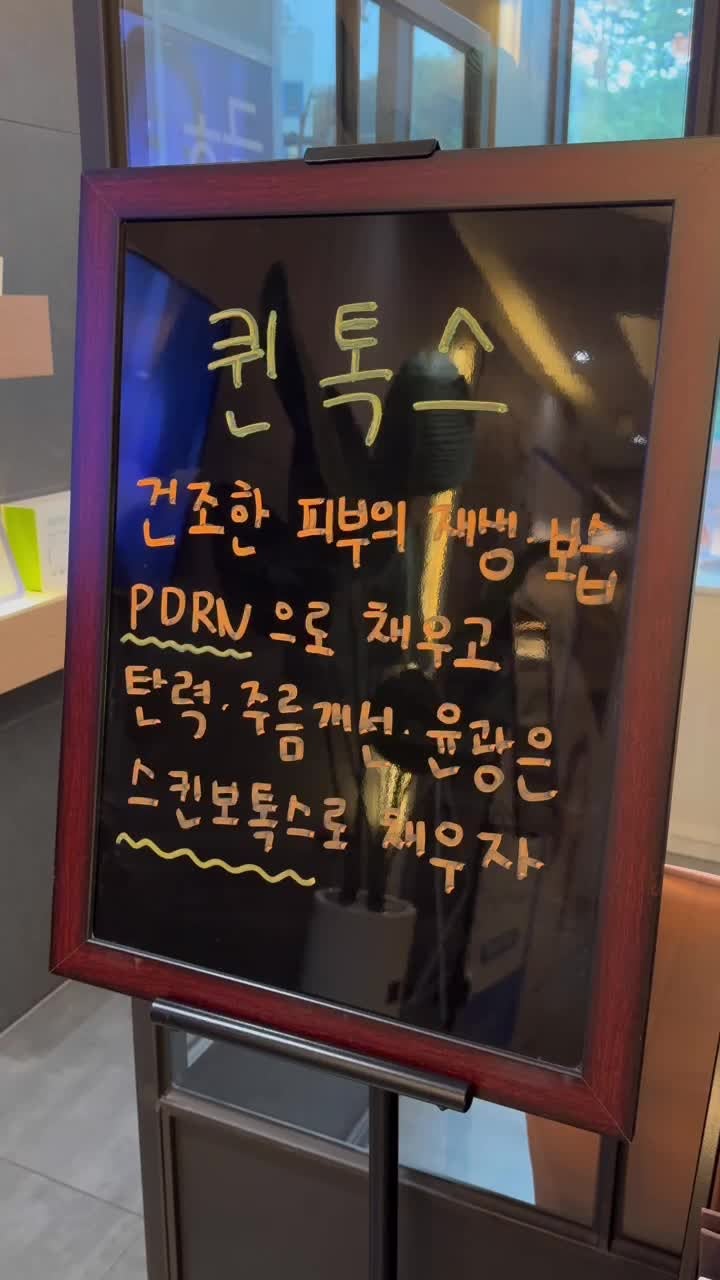 퀸톡스
건조한 피부의 재생·보습
PDRN으로 채우고
탄력·주름개선·윤광은
스킨보톡스로 채우자